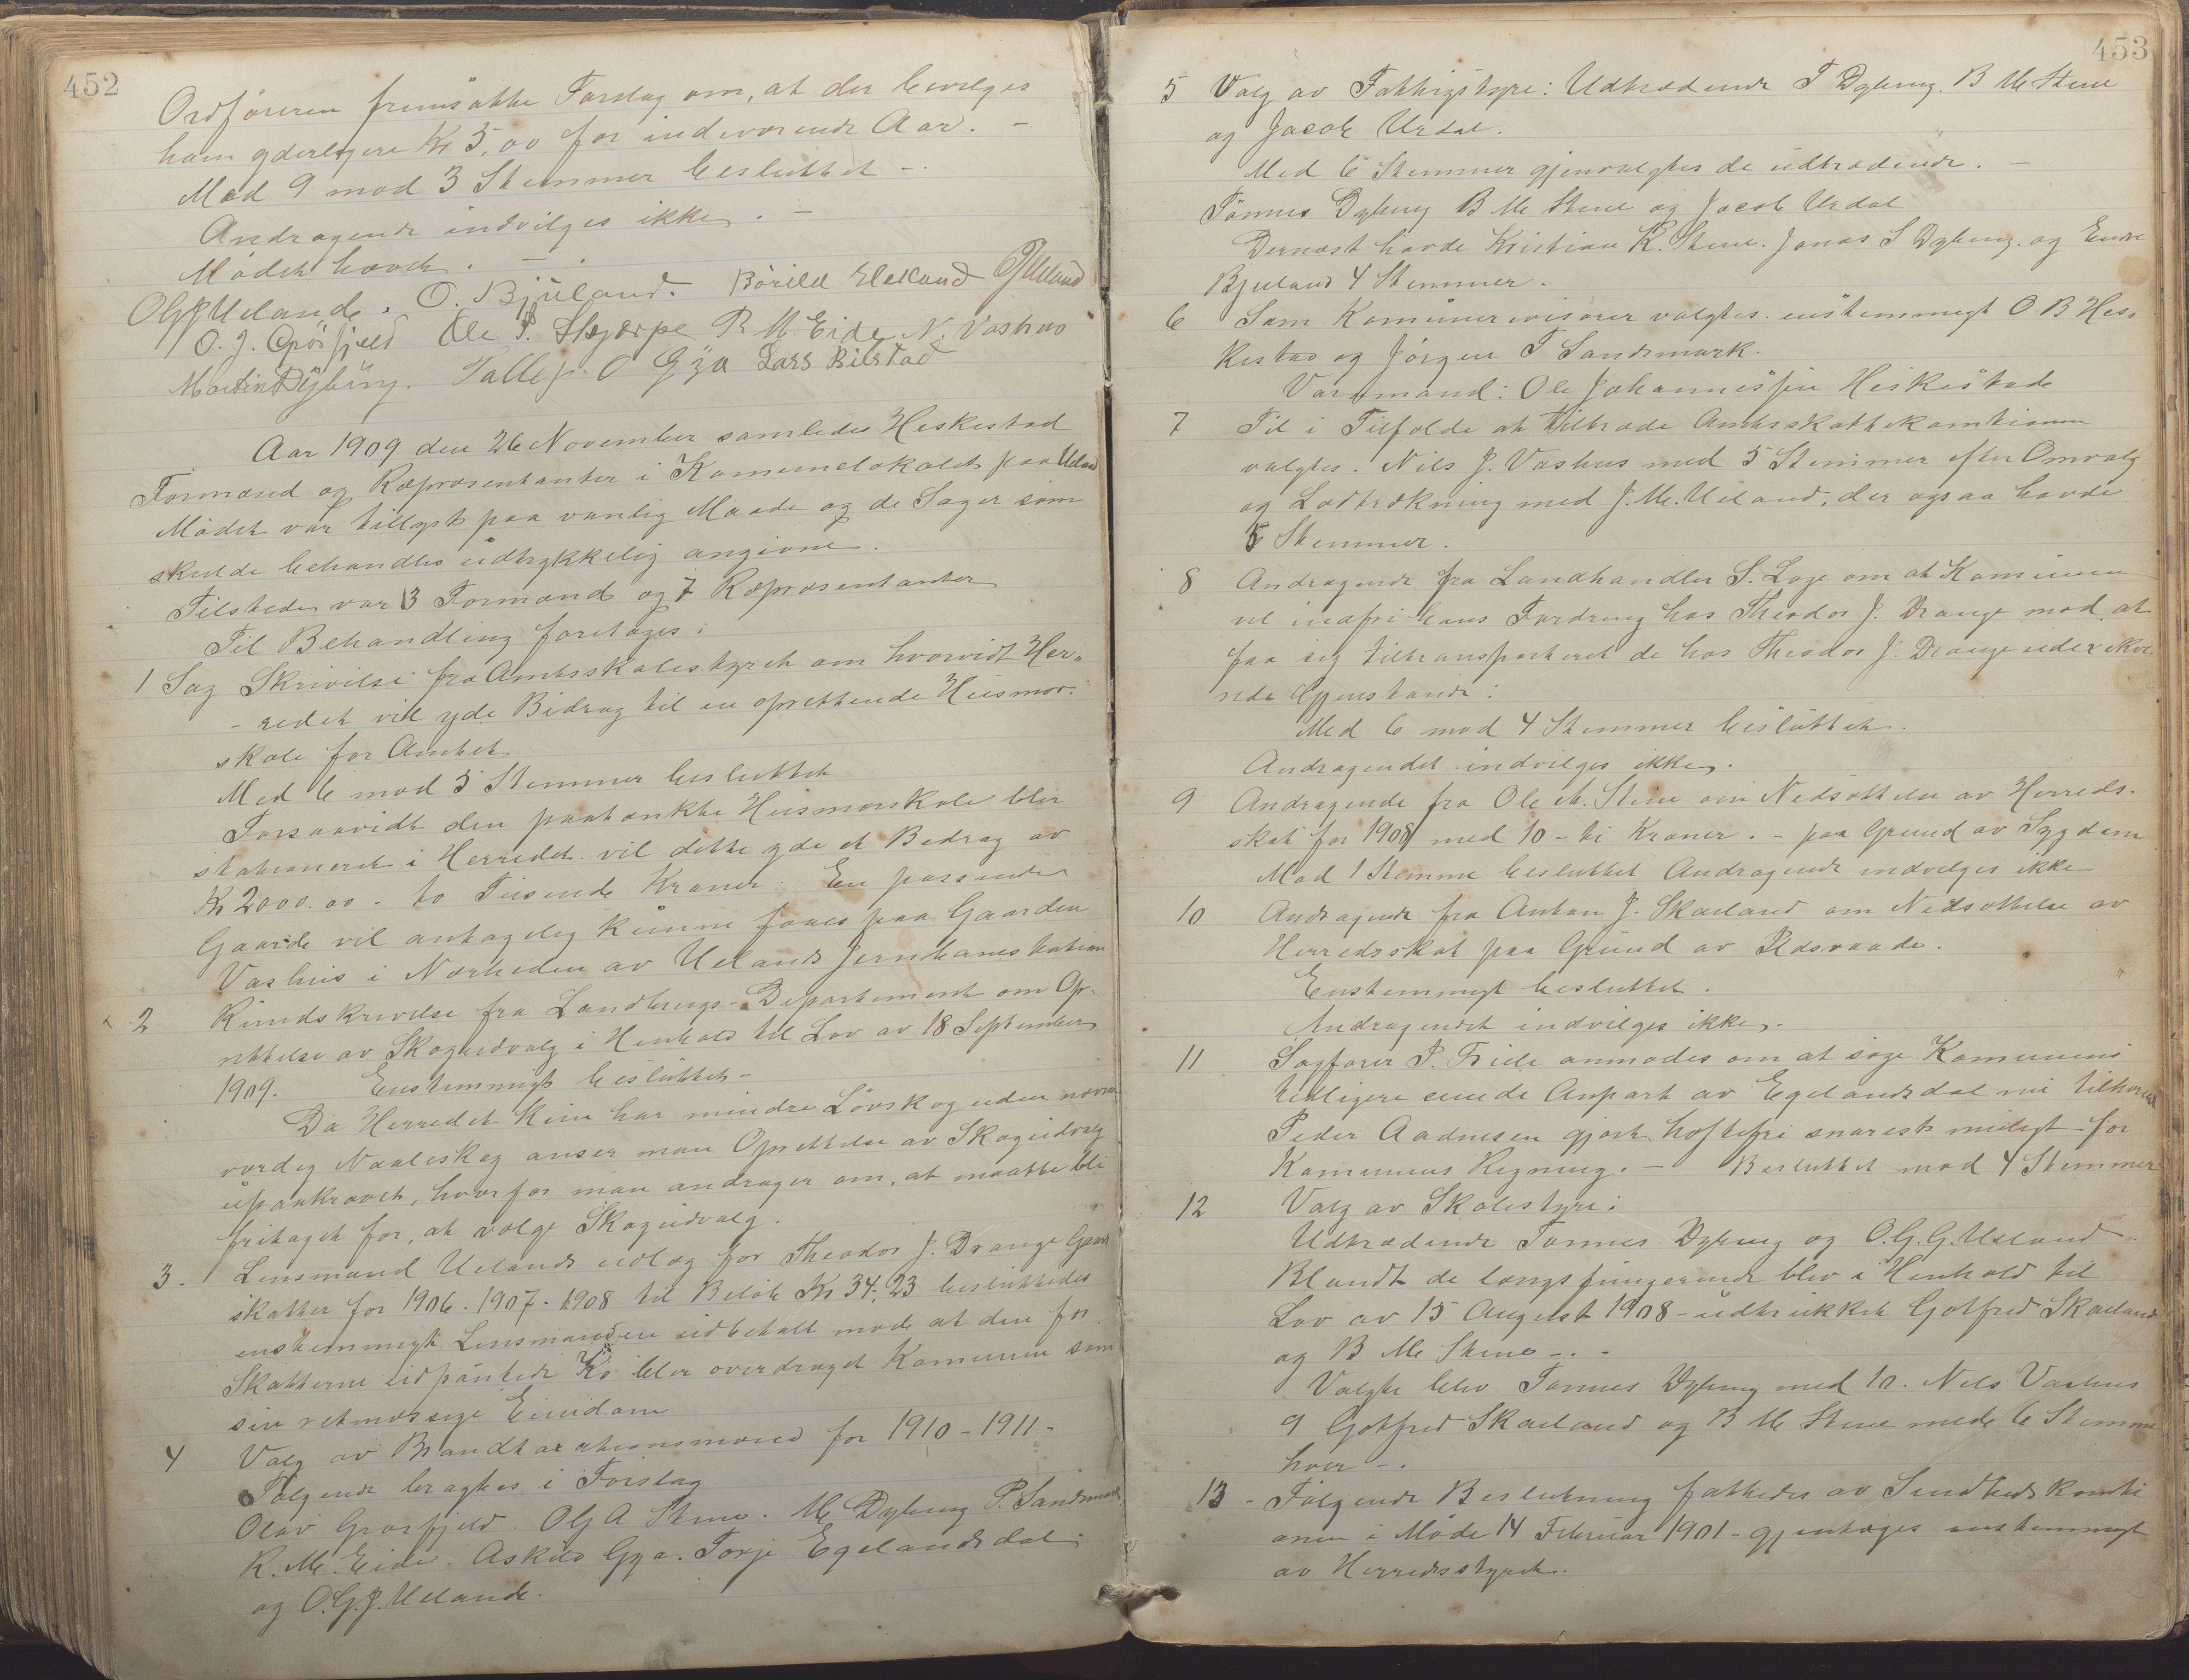 452
Ordföreren fremsatte Forslag om, at der bevilges
ham yderligere Kr 5,00 for indeværende Aar. -
Med 9 mod 3 Stemmer besluttet -
Andragende indvilges ikke. -
Mödet hævet. -
OGJ Ueland. O. Bjuland. Börild Eikeland
O. J. Grösfjeld Ole P. Skjærpe R M Eide N. Vashus
Martin Dybing. Tallef O Gya Lars Bilstad
Aar 1909 den 26 November samledes Heskestad
Formænd og Repræsentanter i Komunelokalet paa Ueland
Mödet var tillyst paa vanlig Maade og de Sager som
skulde behandles udtrykkelig angivne.
Tilstede var 3 Formænd og 7 Repræsentanter
Til Behandling foretoges:
1 Sag Skrivelse fra Amtsskolestyret om hvorvidt Her-
- redet vil yde Bidrag til en oprettende Husmor-
skole for Amtet
Med 6 mod 5 Stemmer besluttet
Forsaavidt den paatænkte Husmorskole blir
stationeret i Herredet vil dette yde et Bedrag av
Kr 2000.00 - to Tusende Kroner. En passende
Gaarde vil antagelig kunne faaes paa Gaarden
Vashus i Nærheden av Uelands Jernbanestation
2 Rundskrivelse fra Landbrugs-Departement om Op-
rettelse av Skogudvalg i Henhold til Lov av 18 September
1909. Enstemmigt besluttet -
Da Herredet kun har mindre Lövskog uden nævne
værdig Naaleskog anser man Oprettelse av Skogudvalg
upaakrævet, hvorfor man andrager om, at maatte bli
fritaget for, at vælge Skogudvalg.
3. Lensmand Uelands udlæg for Theodor J. Drange Gaard
skatter for 1906-1907-1908 til Belöb Kr 34,23 besluttedes
enstemmigt Lensmanden udbetalt mod at den for
Skatterne udpantede Ko bler overdraget Komunen som
sin retmæssige Eiendom
4 Valg av Brandtaxationsmænd for 1910-1911-
Fölgende bragtes i Forslag
Olav Grosfjeld. Ole A Stene. M Dybing P. Sandsmark
R. M. Eide. Askild Gya. Torje Egelandsdal
og O.G.J. Ueland.
453
5 Valg av Fattigstyre: Udtrædende T Dybing. B M Stene
og Jacob Urdal.
Med 6 Stemmer gjenvalgtes de udtrædende. -
Tönnes Dybing B M Stene og Jacob Urdal
Dernæst havde Kristian K. Stene. Jonas S Dybing. og Endre
Bjuland 4 Stemmer.
6 Som Komunerevisorer valgtes enstemmigt O B Hes-
kestad og Jörgen T Sandsmark.
Varamand: Ole Johannessen Heskestad
7 Til i Tilfælde at tiltræde Amtsskattekomitionen
valgtes. Nils J. Vashus med 5 Stemmer efter Omvalg
og Lodtrækning med J. M. Ueland, der ogsaa havde
5 Stemmer.
8 Andragende fra Landhandler S. Loge om at Komunen
vil indfri hans Fordring hos Theodor J. Drange mod, at
faa sig tiltransporteret de hos Theodor J. Drange
Gjenstande:
Med 6 mod 4 Stemmer besluttet.
Andragendet indvilges ikke.
9 Andragende fra Ole A. Stene om Nedsættelse av Herreds-
skat for 1908 med 10 - ti Kroner. - paa Grund av Sygdom
Mod 1 Stemme besluttet Andragende indvelges ikke
10 Andragende fra Anton J. Skaeland om Nedsættelse av
Herredsskat paa Grund av Ildsvaade.
Enstemmigt besluttet.
Andragendet indvilges ikke.
11 Sagförer P. Friele anmodes om at söge Komunens
tidligere eiende Anpart av Egelandsdal nu tilhörende
Peder Aadnesen gjort heftefri snarest muligt for
Komunens Regning. - Besluttet mod 4 Stemmer
12 Valg av Skolestyre:
Udtrædende Tönnes Dybing og O.G.G. Ueland.
Blandt de længst fungerende blev i Henhold til
Lov av 15 August 1908 - udtrukket Gotfred Skaeland
og B M Stene -. -
Valgte blev Tönnes Dybing med 10. Nels Vashus
9 Gotfred Skaeland og B M Stene med 6 Stemme
hver -.
13 - Fölgende Beslutning fattedes av Sundhedskomti
onen i Möde 14 Februar 1901 - gjentages enstemmigt
av Herredsstyret.